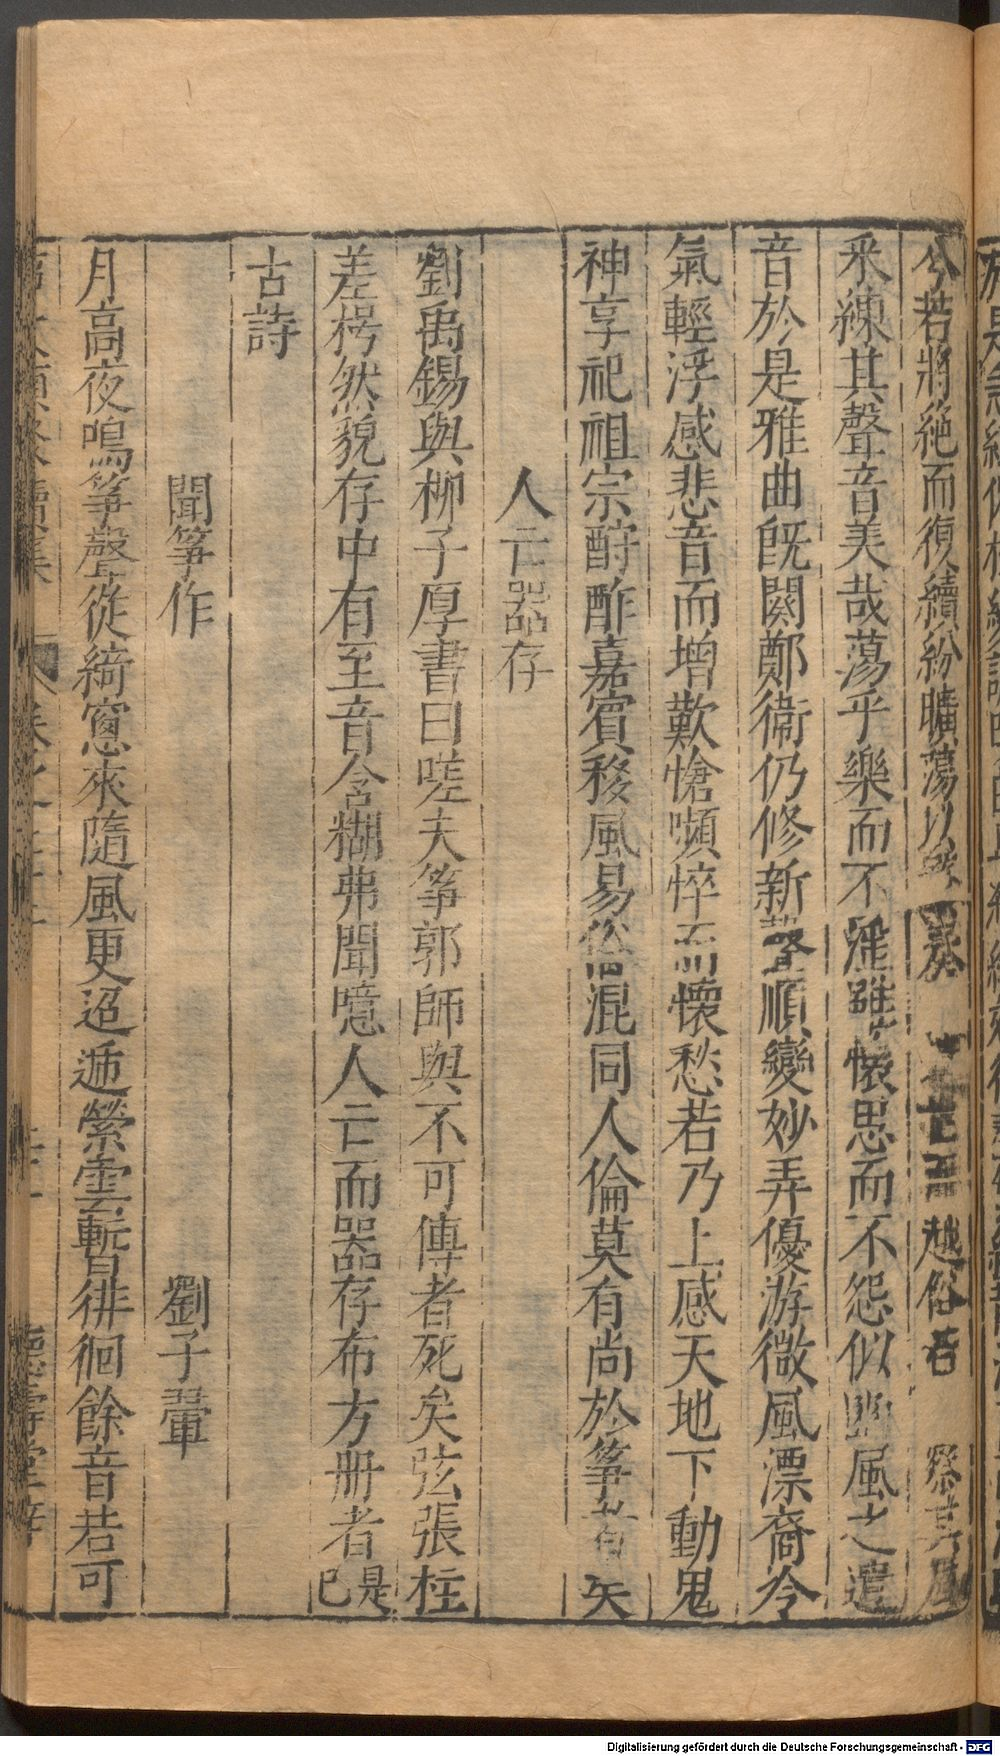 兮若將絶而復續紛曠蕩以 越俗若 察其風
釆練其聲音美哉蕩乎樂而不淫雖懷思而不怨似豳風之遺
音於是雅曲旣闋鄭衞仍修新聲順變妙弄優游微風漂裔冷
氣輕浮感悲音而增歎愴嚬悴而懷愁若乃上感天地下動鬼
神享祀祖宗酧酢嘉賓移風易俗混同人倫莫有尚於筝者矣
人亡器存
劉禹錫與柳子厚書曰嗟夫筝郭師與不可傳者死矣弦張柱
差枵然貌存中有至音含糊弗聞噫人亡而器存布方册者是已
古詩
聞筝作 劉子翬
月高夜鳴筝聲從綺窻來隨風更迢遞縈雲暫徘徊餘音若可
德壽堂梓
Digitalisierung gefördert durch die Deutsche Forschungsgemeinschaft - DFG